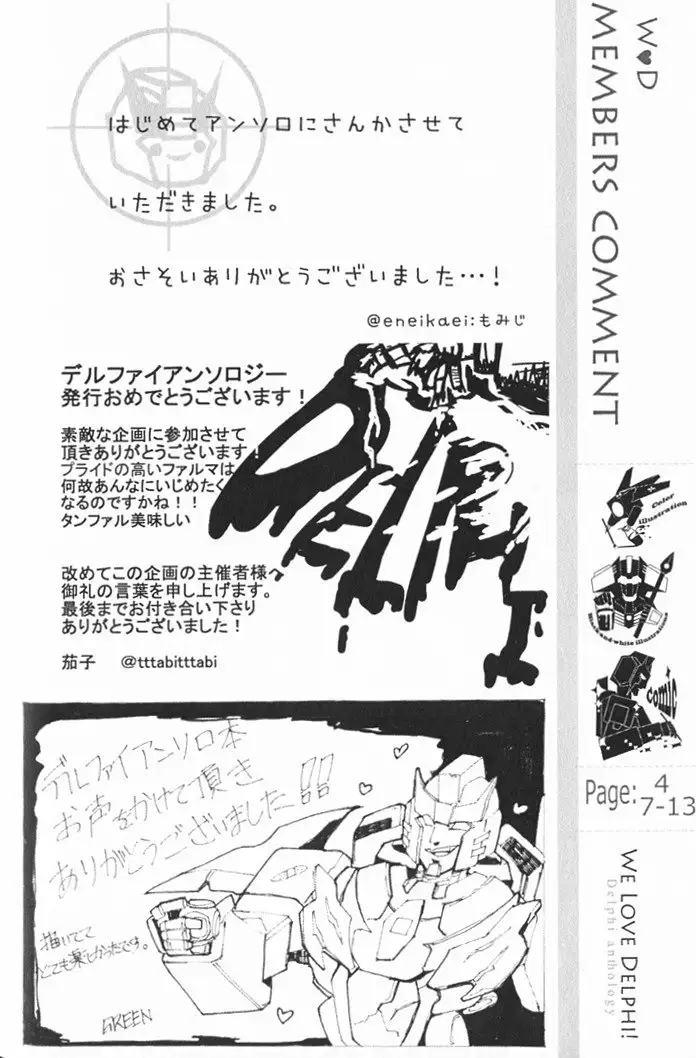 はじめてアンソロにさんかさせて
いただきました。
おさそいありがとうございました…!
@eneikaei:もみじ
デルファイアンソロジー
発行おめでとうございます!
素敵な企画に参加させて
頂きありがとうございます!
プライドの高いファルマは
何故あんなにいじめたく
なるのですかね!!
タンファル美味しい
改めてこの企画の主催者様へ
御礼の言葉を申し上げます。
最後までお付き合い下さり
ありがとうございました!
茄子 @tttabitttabi
デルファイアンソロ本
お声をかけて頂き
ありがとうございました!!
描いてて
とても楽しかったです。
GREEN
W♥D
MEMBERS COMMENT
Color
illustration
Black and white illustrations
comic
Page: 4
7-13
WE LOVE DELPHI!
Delphi anthology